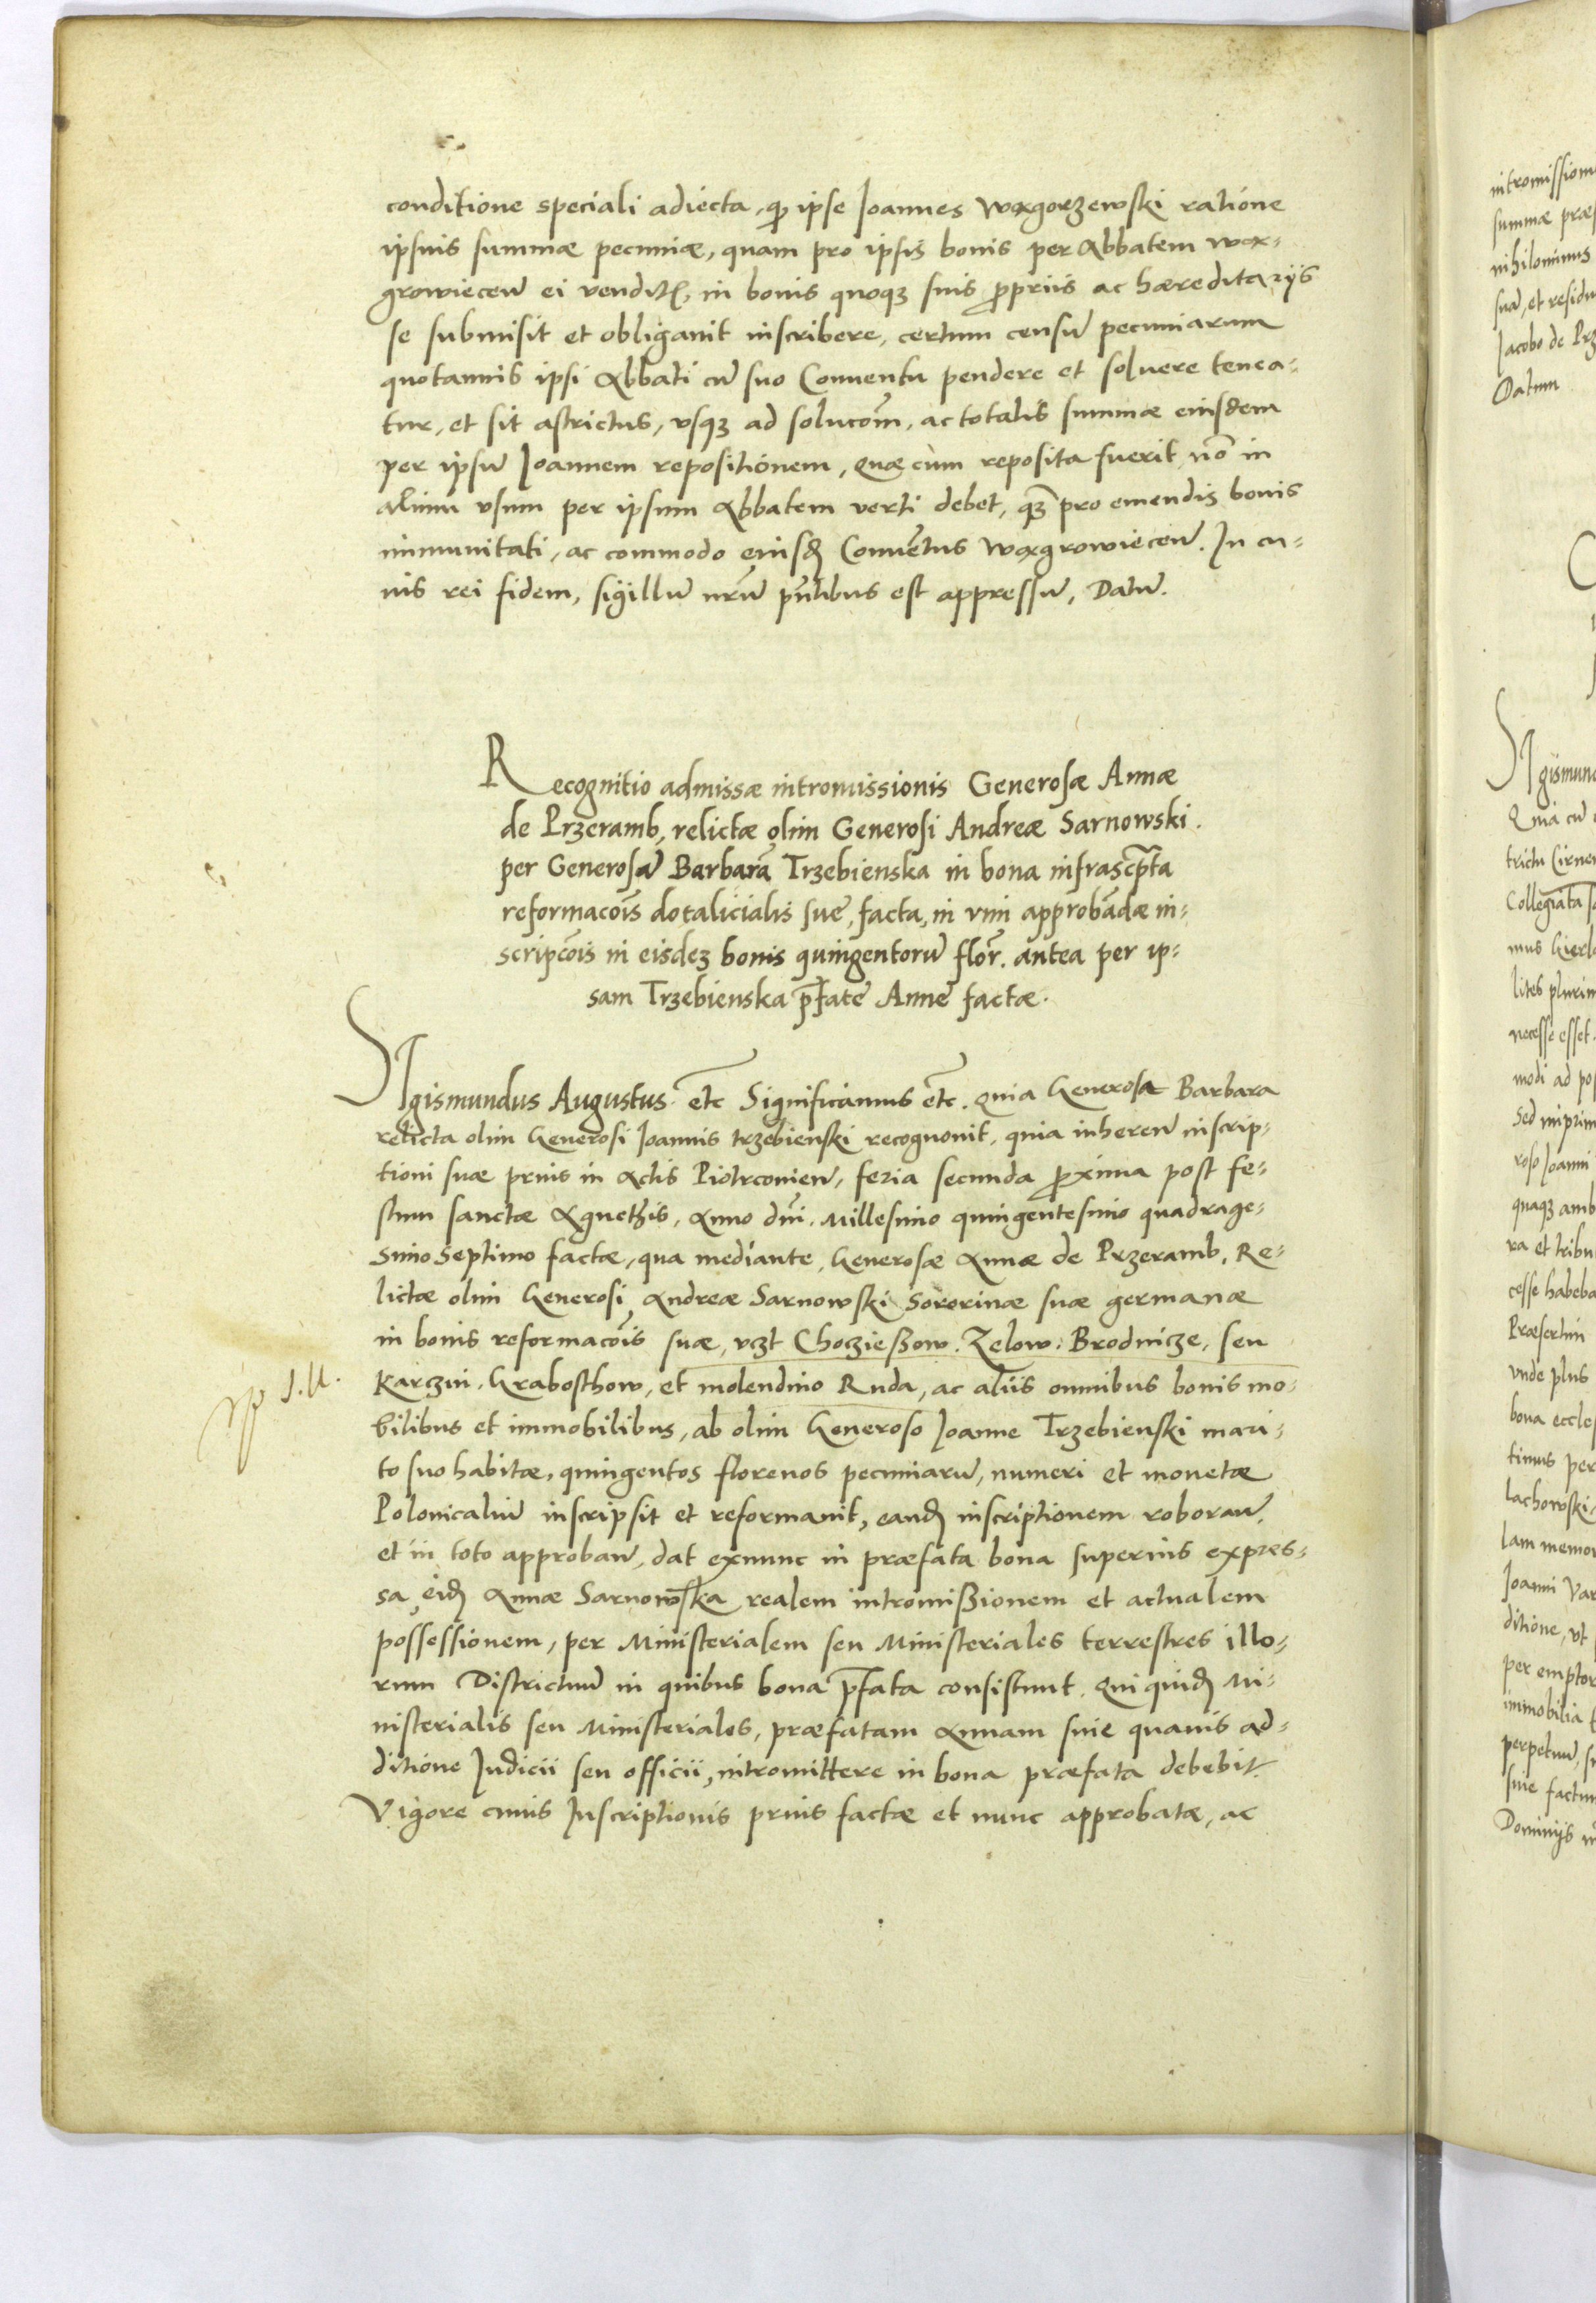 conditione speciali adiecta, qꝫ ipse Joannes Wągorzewski ratione
ipsuis summæ pecuniæ, quam pro ipsis bonis per Abbatem Wą-
growiecen̄ ei venditꝭ, in bonis quoqꝫ suis ꝓpriis ac hæreditarijs
se submisit et obligauit inscribere, certum censū pecuniarum
quotannis ipsi Abbati cū suo Conuentu pendere et soluere tenea-
tur, et sit astrictus, vsqꝫ ad solucōm, ac totalis summæ eiusdem
per ipsū Joannem repositionem, quæ cum reposita fuerit, nō in
alium vsum per ipsum Abbatem verti debet, qꝫ̄ pro emendis bonis
immunitati, ac commodo eiusꝺ Conuētus Wągrowiecen̄. In cu-
uis rei fidem, sigillū nr̄ū pn̄tibus est appressū, Datū.
Recognitio admissæ intromissionis Generosæ Annæ
de Przeramb, relictæ olim Generosi Andreæ Sarnowski.
per Generosā Barbarā Trzebienska in bona infrascp̄ta
reformacōis dotalicialis suę, facta, in vim approbādæ in-
scripcōis in eisdeꝫ bonis quingentorū flor̄. antea per ip-
sam Trzebienska p̄fatę Annę factæ.
SIgismundus Augustus etc̄ Significamus etc̄. quia Generosa Barbara
relicta olim Generosi Joannis Trzebienski recognouit, quia inheren̄ inscrip-
tioni suæ prius in Actis Piotrconien̄, feria secunda ꝓxima post fe-
stum sanctæ Agnethis, Anno dn̄i. Millesimo quingentesimo quadrage-
simo septimo factæ, qua mediante, Generosæ Annæ de Przeramb, Re-
lictæ olim Generosi Andreæ Sarnowski Sororinæ suæ germanæ
in bonis reformacōis suæ, vczt Choczießow. Zelow. Brodnicze, seu
Karczm. Grabosthow, et molendino Ruda, ac aliis omnibus bonis mo-
bilibus et immobilibus, ab olim Generoso Joanne Trzebienski mari-
to suo habitæ, quingentos florenos pecuniarū, numeri et monetæ
Polonicaliū inscripsit et reformauit, eandꝫ inscriptionem roboran̄
et in toto approban̄, dat exnunc in præfata bona superius expres-
sa, eidꝫ Annæ Sarnowska realem intromißionem et actualem
possessionem, per Ministerialem seu Ministeriales terrestres illo-
rum Districtuū in quibus bona p̄fata consistunt. Qui quidꝫ Mi-
nisterialis seu Ministeriales, præfatam Annam sine quauis ad-
ditione Judicii seu officii, intromittere in bona præfata debebit.
Vigore cuius Inscriptionis prius factæ et nunc approbatæ, ac
intromission
summæ præf
nihilominus
suā, et residu
Jacobo de Prz
Datum
SIgismund
Quia cū
trictu Cirne
Collegiata
mus Gierl
lites plurim
necesse esset
modi ad po
Sed inprim
roso Joanni
quaqꝫ amb
ra et tribu
cesse habeba
Præsertim
vnde plus
bona eccle
timus per
lachowski
lam memor
Joanni Var
ditione, vt
per emptor
immobilia
perpetuū, s
siue factum
Dominijs